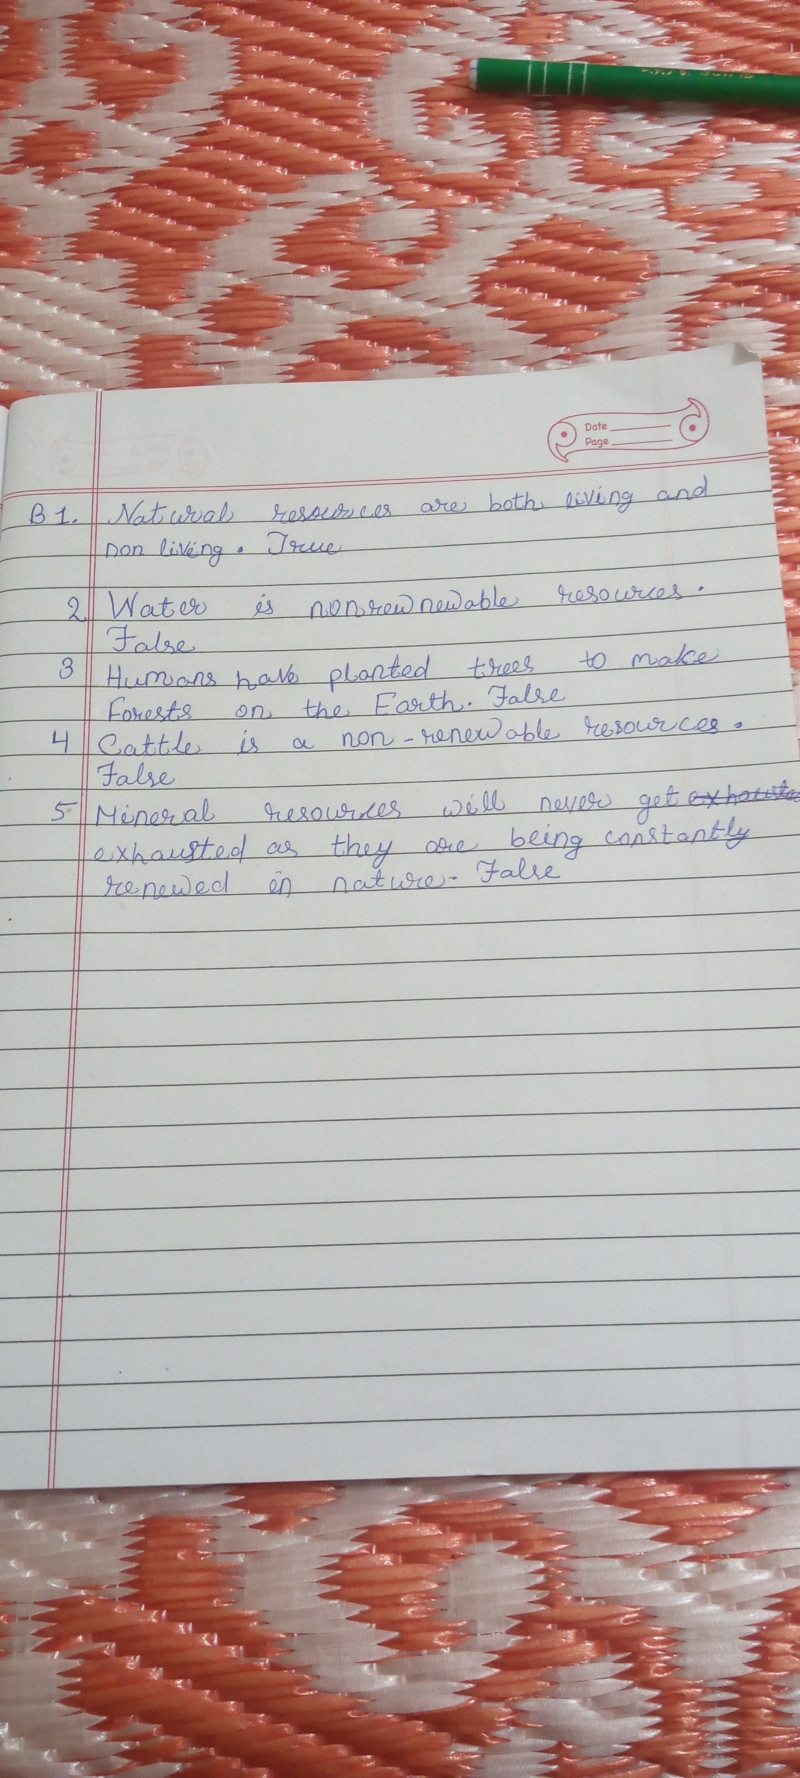 Date
Page
B 1. Natural resources are both living and
non living. True
2 Water is nonrewnewable resources.
False
3 Humans have planted trees to make
Forests on the Earth. False
4 Cattle is a non-renewable resources.
False
5 Mineral resources will never get exhauste
exhausted as they are being constantly
renewed in nature. False